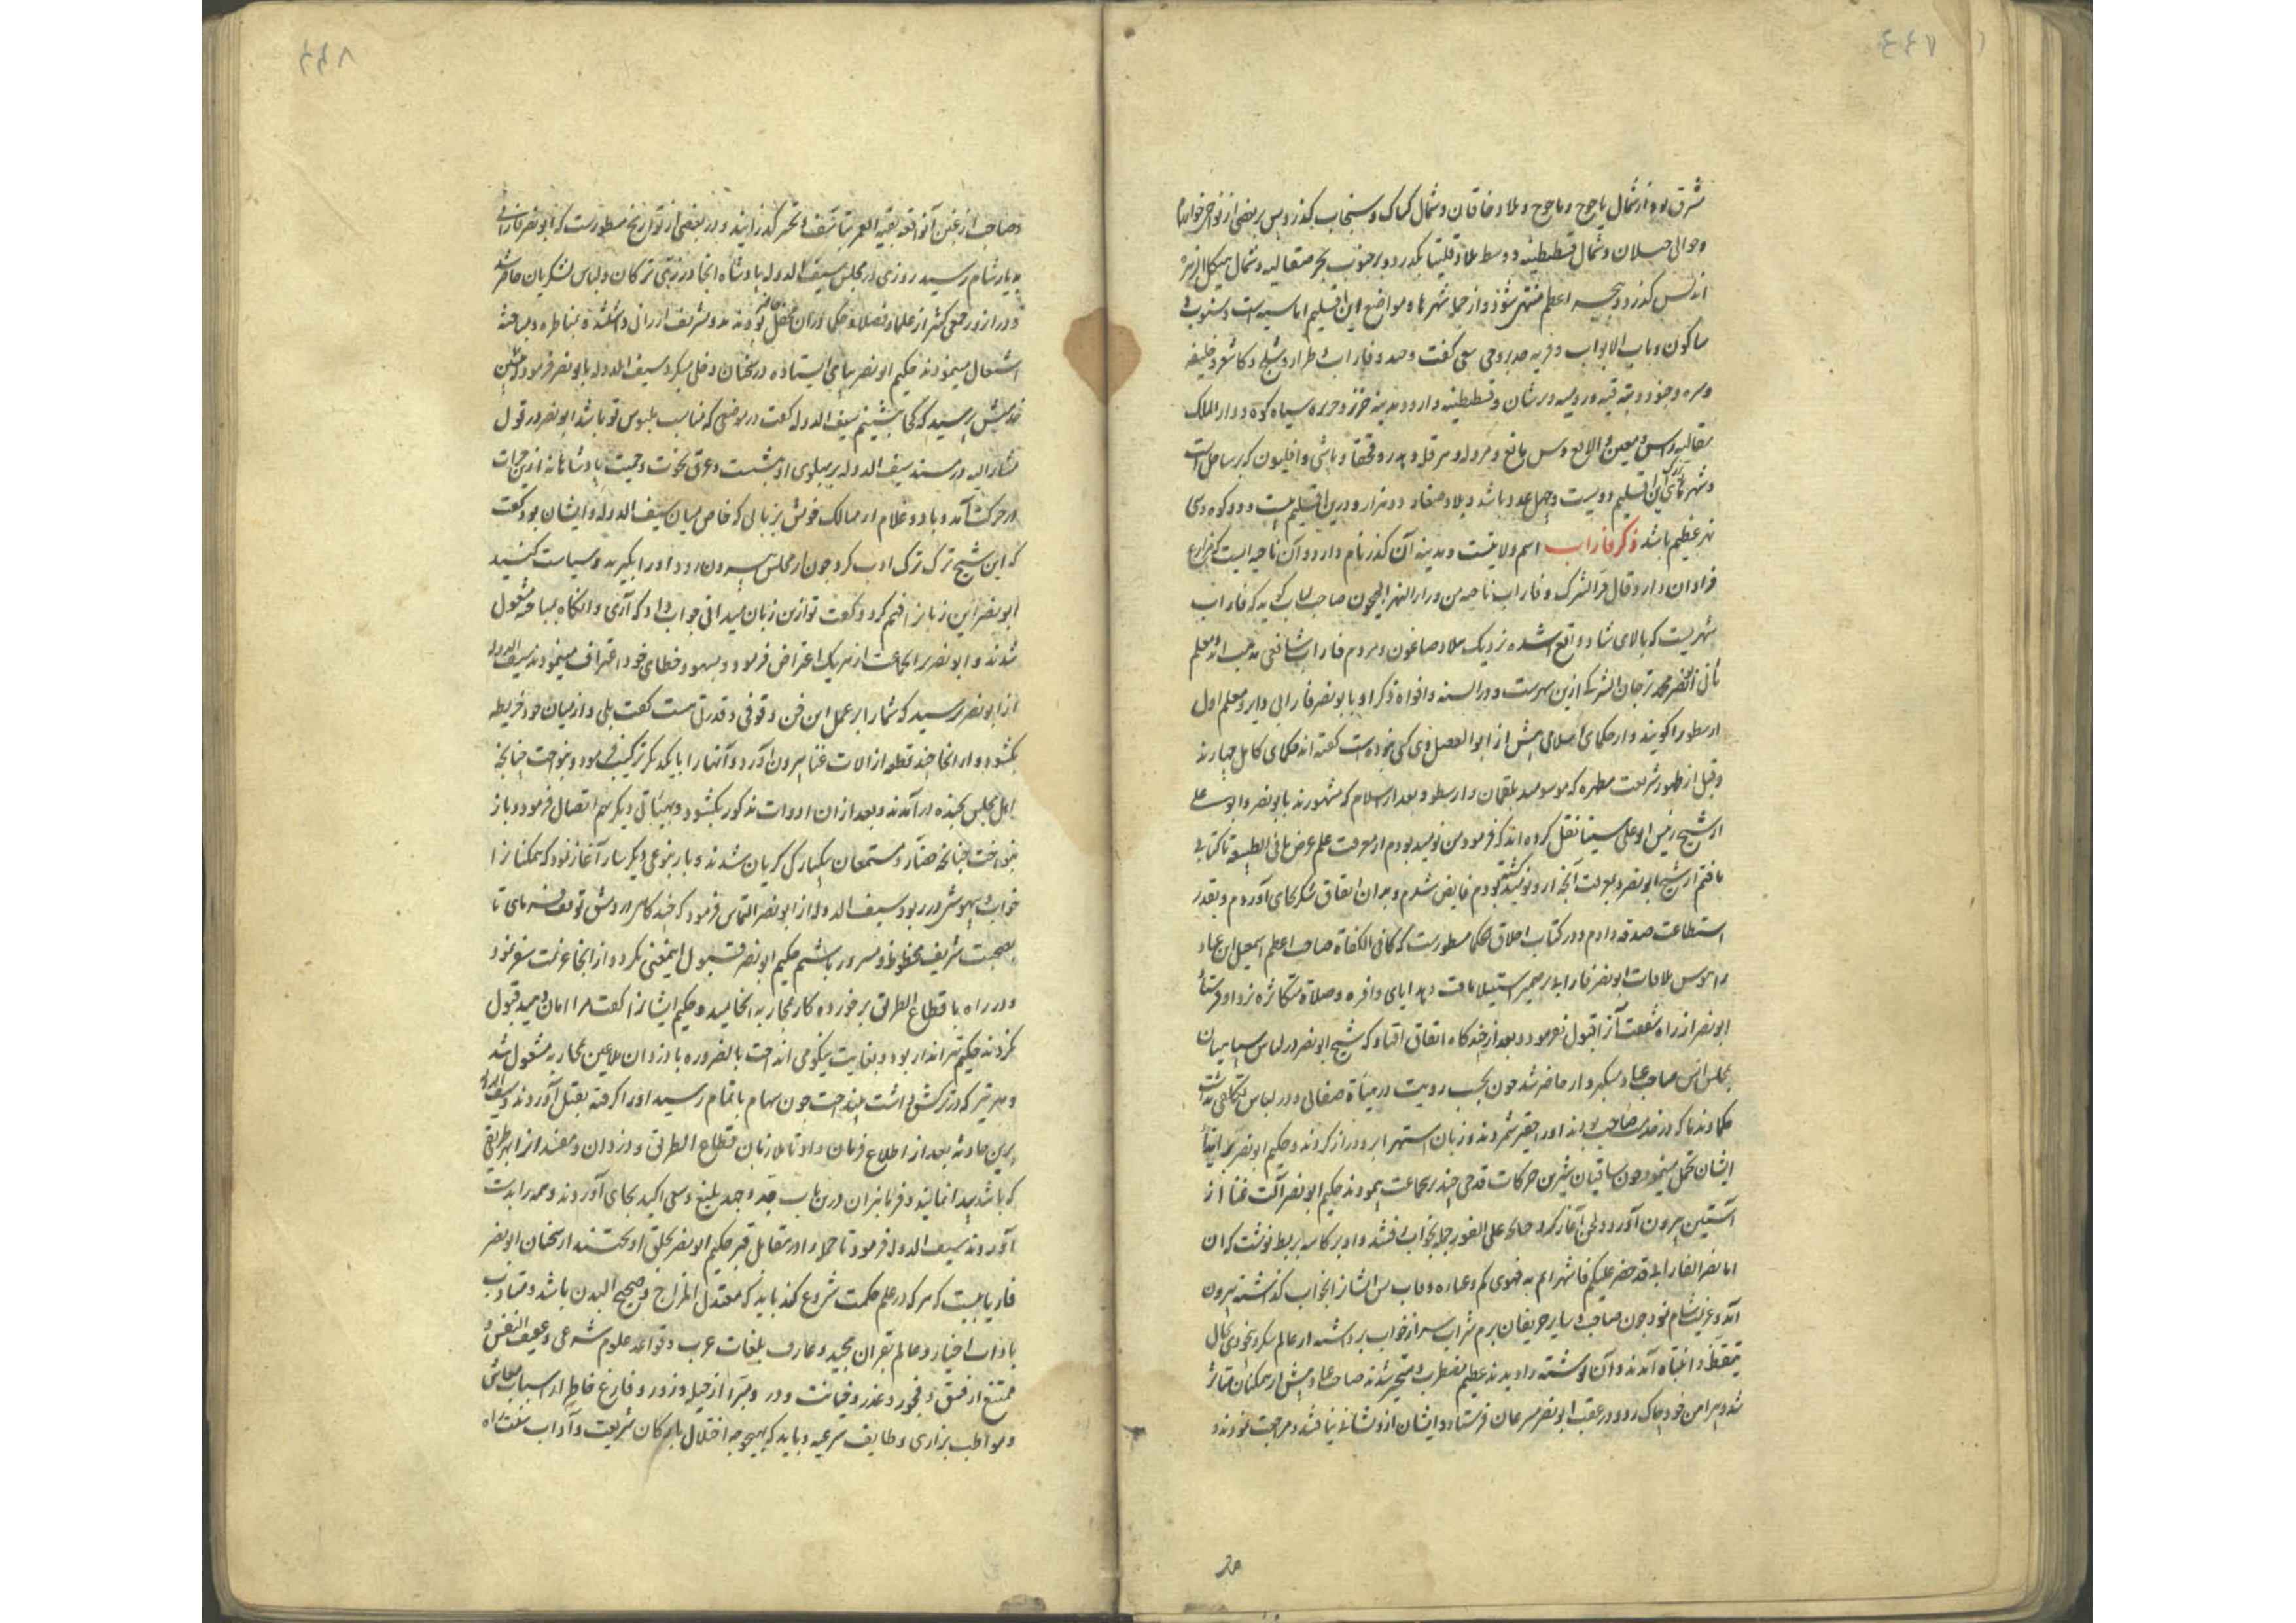 ٤٤٧
مشرق بوده از شمال یاجوج و ماجوج و بلاد خاقان و شمال کیماک و سنجاب بگذرد پس بر بعضی از نواحی خوارزم
و حوالی جیلان و شمال قسطنطنیه و وسط بلاد بگذرد و بر جنوب بحر صقالیه و شمال هیکل الزهره
اندلس گذرد و ببحر اعظم منتهی شود و از جمله شهرها و مواضع این اقلیم
و باب الابواب و قریه و فاراب و طراز و شلج و کاشغر و خلیفه
و قسطنطنیه دارد و مدینه خزر و جزیره سیاه کوه و دار الملک
صقالیه که بر ساحل است
و شهرهای بزرگ این اقلیم دویست و چهل عدد باشد و بلاد صغار دو هزار و درین اقلیم بیست و دو کوه و سی
نهر عظیم باشد ذکر فاراب اسم ولایتست و مدینه آن کدر نام دارد و آن ناحیه ایست که مزارع
فراوان دارد قال فی المشترک و فاراب ناحیه من وراء النهر جیحون صاحب لباب گوید که فاراب
شهریست که بالای شاد واقع شده نزدیک بلاد صاغون و مردم فاراب شافعی مذهب اند و معلم
ثانی ابو نصر محمد ترجمان ازین شهرست و در السنه و افواه ذکر او بابو نصر فارابی دایر و معلم اول
ارسطو را گویند و از حکمای اسلامی پیش از ابو الفضل وی کسی نبوده است گفته اند حکمای کامل چهارند
و قبل از ظهور شریعت مطهره که موسومند بلقمان و ارسطو و بعد از اسلام که مشهورند بابو نصر و ابو علی
از شیخ رئیس ابو علی سینا نقل کرده اند که فرمود من نومید بودم از معرفت علم غرض ما فی الطبیعه تا کتابی
یافتم از شیخ ابو نصر و بمعرفت آنچه ازو نومید گشته بودم فایض شدم و بدان اتفاق شکر بجای آوردم و بقدر
استطاعت صدقه دادم و در کتاب اخلاق حکما مسطورست که کافی الکفاة صاحب اعظم اسمعیل ابن عباد
را هوس ملاقات ابو نصر فارابی بر ضمیر استیلا یافت و هدایای وافره و صلاة متکاثره نزد او فرستاد
ابو نصر از راه آنرا قبول نفرمود و بعد از چند گاه اتفاق افتاد که شیخ ابو نصر در لباس سپاهیان
بمجلس انس صاحب عباد حاضر شد چون بحسب رویت در لباس تکلفی نداشت
حکما و ندما که در خدمت صاحب بودند او را حقیر شمردند و زبان استهزا برو دراز کردند و حکیم ابو نصر بر ایذاء
ایشان تحمل مینمود و چون ساقیان شیرین حرکات قدحی چند بر جماعت پیمودند حکیم ابو نصر آلت غنا از
آستین بیرون آورد و لحنی آغاز کرد چنانچه علی الفور جمله بخواب رفتند و او بر کاسه بربط نوشت که ان
ابا نصر الفارابی قد حضر علیکم پس ایشانرا بخواب گذاشته بیرون
آمد و عزیمت شام نمود چون صاحب و سایر حریفان بزم شراب سر از خواب برداشته از عالم سکر و بیخودی بحال
تیقظ و انتباه آمدند و آن نوشته را دیدند عظیم مضطرب و متحیر شدند صاحب عباد بیش از همگنان متاثر
شد و پیراهن خود چاک زد و در عقب ابو نصر مسرعان فرستاد و ایشان ازو نشانی نیافتند و مراجعت نمودند
٤٤٨
و صاحب از غبن آن واقعه بقیه العمر بتاسف و تحسر گذرانید و در بعضی از تواریخ مسطورست که ابو نصر فارابی
بدیار شام رسید روزی در مجلس سیف الدوله پادشاه آنجا در زی ترکان و لباس لشکریان حاضر شد
و در آن روز جمعی کثیر از علما و فضلا و حکما در آن محفل حاضر بودند و بمناظره و مباحثه
اشتغال مینمودند حکیم ابو نصر بپای ایستاده در سخنان دخل میکرد سیف الدوله بابو نصر فرمود بنشین
پرسید که کجا بنشینم سیف الدوله گفت در موضعی که مناسب بلبوس تو باشد ابو نصر در قول
مشارالیه در مسند سیف الدوله بر پهلوی او بنشست و عرق نخوت و حمیت پادشاهانه ازین حرکات
در حرکت آمد و با دو غلام از ممالک خویش بزبانی که خاص میان سیف الدوله و ایشان بود گفت
که این شیخ ترک ترک ادب کرد چون از مجلس بیرون رود او را بگیرید و سیاست کنید
ابو نصر این زبانرا فهم کرد و گفت تو ازین زبان میدانی جواب داد که آری و آنگاه بمباحثه مشغول
شدند و ابو نصر بر آن جماعت از هر یک اعتراض فرمود و بسهو و خطای خود اعتراف مینمودند سیف الدوله
از ابو نصر پرسید که شما را بر عمل این فن وقوفی و قدرتی هست گفت بلی و از میان خود خریطه
بگشود و از آنجا چند قطعه از آلات غنا بیرون آورد و آنها را با یکدیگر ترکیب فرمود و بنواخت چنانچه
اهل مجلس بخنده در آمدند و بعد از آن ادوات مذکور بگشود و بهیئاتی دیگر بهم اتصال فرمود و باز
بنواخت چنانچه حضار و مستمعان بیکبارگی گریان شدند و باز بنوعی دیگر ساز آغاز نمود که همگنانرا
خواب بیهوشی در ربود سیف الدوله از ابو نصر التماس فرمود که چند گاهی در دمشق توقف فرمای تا
بصحبت شریف محظوظ و مسرور باشیم حکیم ابو نصر قبول اینمعنی نکرد و از آنجا عزیمت سفر نمود
و در راه با قطاع الطریق برخورده کار بمحاربه انجامید و حکیم ایشانرا گفت مرا امان دهید قبول
نکردند حکیم تیر انداز بود و بغایت نیکو می انداخت بالضروره با دزدان ملاعین بمحاربه مشغول شد
و هر تیر که در ترکش داشت بینداخت چون سهام باتمام رسید او را گرفته بقتل آوردند و سیف الدوله
برین حادثه بعد از اطلاع فرمان داد تا ملازمان قطاع الطریق و دزدان و مفسدانرا بهر طریقی
که باشد پیدا نمایند و فرمانبران درین باب جد و جهد بلیغ و سعی اکید بجای آوردند و همه را بدست
آوردند سیف الدوله فرمود تا جمله را در مقابل قبر حکیم ابو نصر بحلق آویختند از سخنان ابو نصر
فاریابیست که هر که در علم حکمت شروع کند باید که معتدل المزاج و صحیح البدن باشد و متادب
باداب اخیار و عالم بقران مجید و عارف بلغات عرب و قواعد علوم شرعی و عفیف النفس و
ممتنع از فسق و فجور و غدر و خیانت و دور و مبرا از حیله و زور و فارغ خاطر از اسباب معاش
و مواظب بر ادای وظایف شرعیه و باید که بهیچوجه اخلال بارکان شریعت و آداب سنت راه